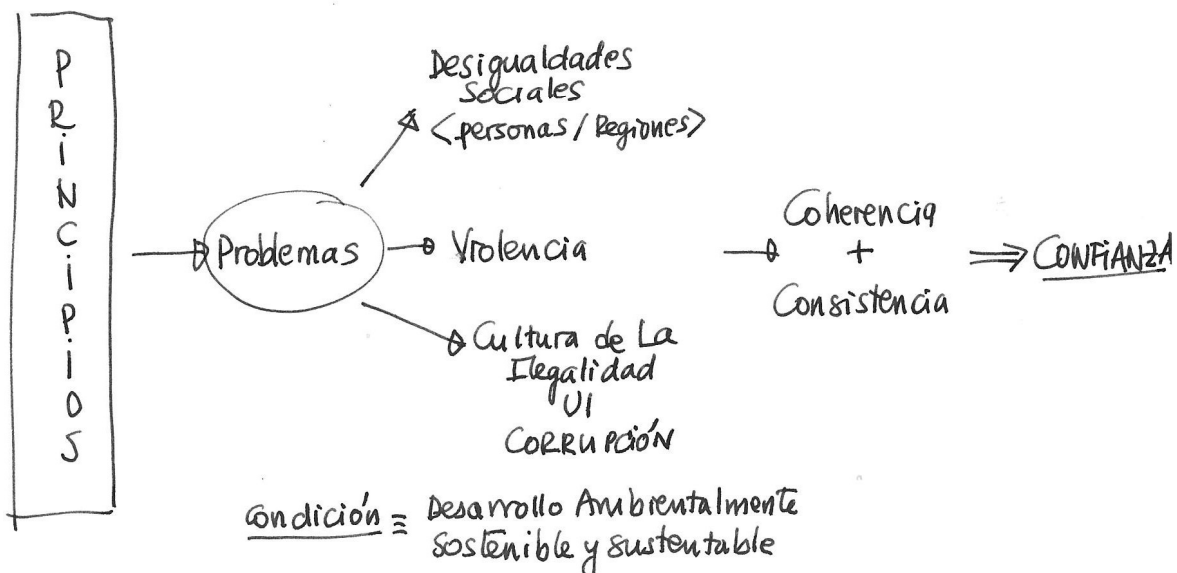 PRiNCiPiOS
Desigualdades
Sociales
<personas / Regiones>
Problemas
Violencia
Cultura de La
Ilegalidad
UI
CORRUPCiÓN
Coherencia
+
Consistencia
CONFiANZA
Condición ≡ Desarrollo Ambientalmente
Sostenible y sustentable